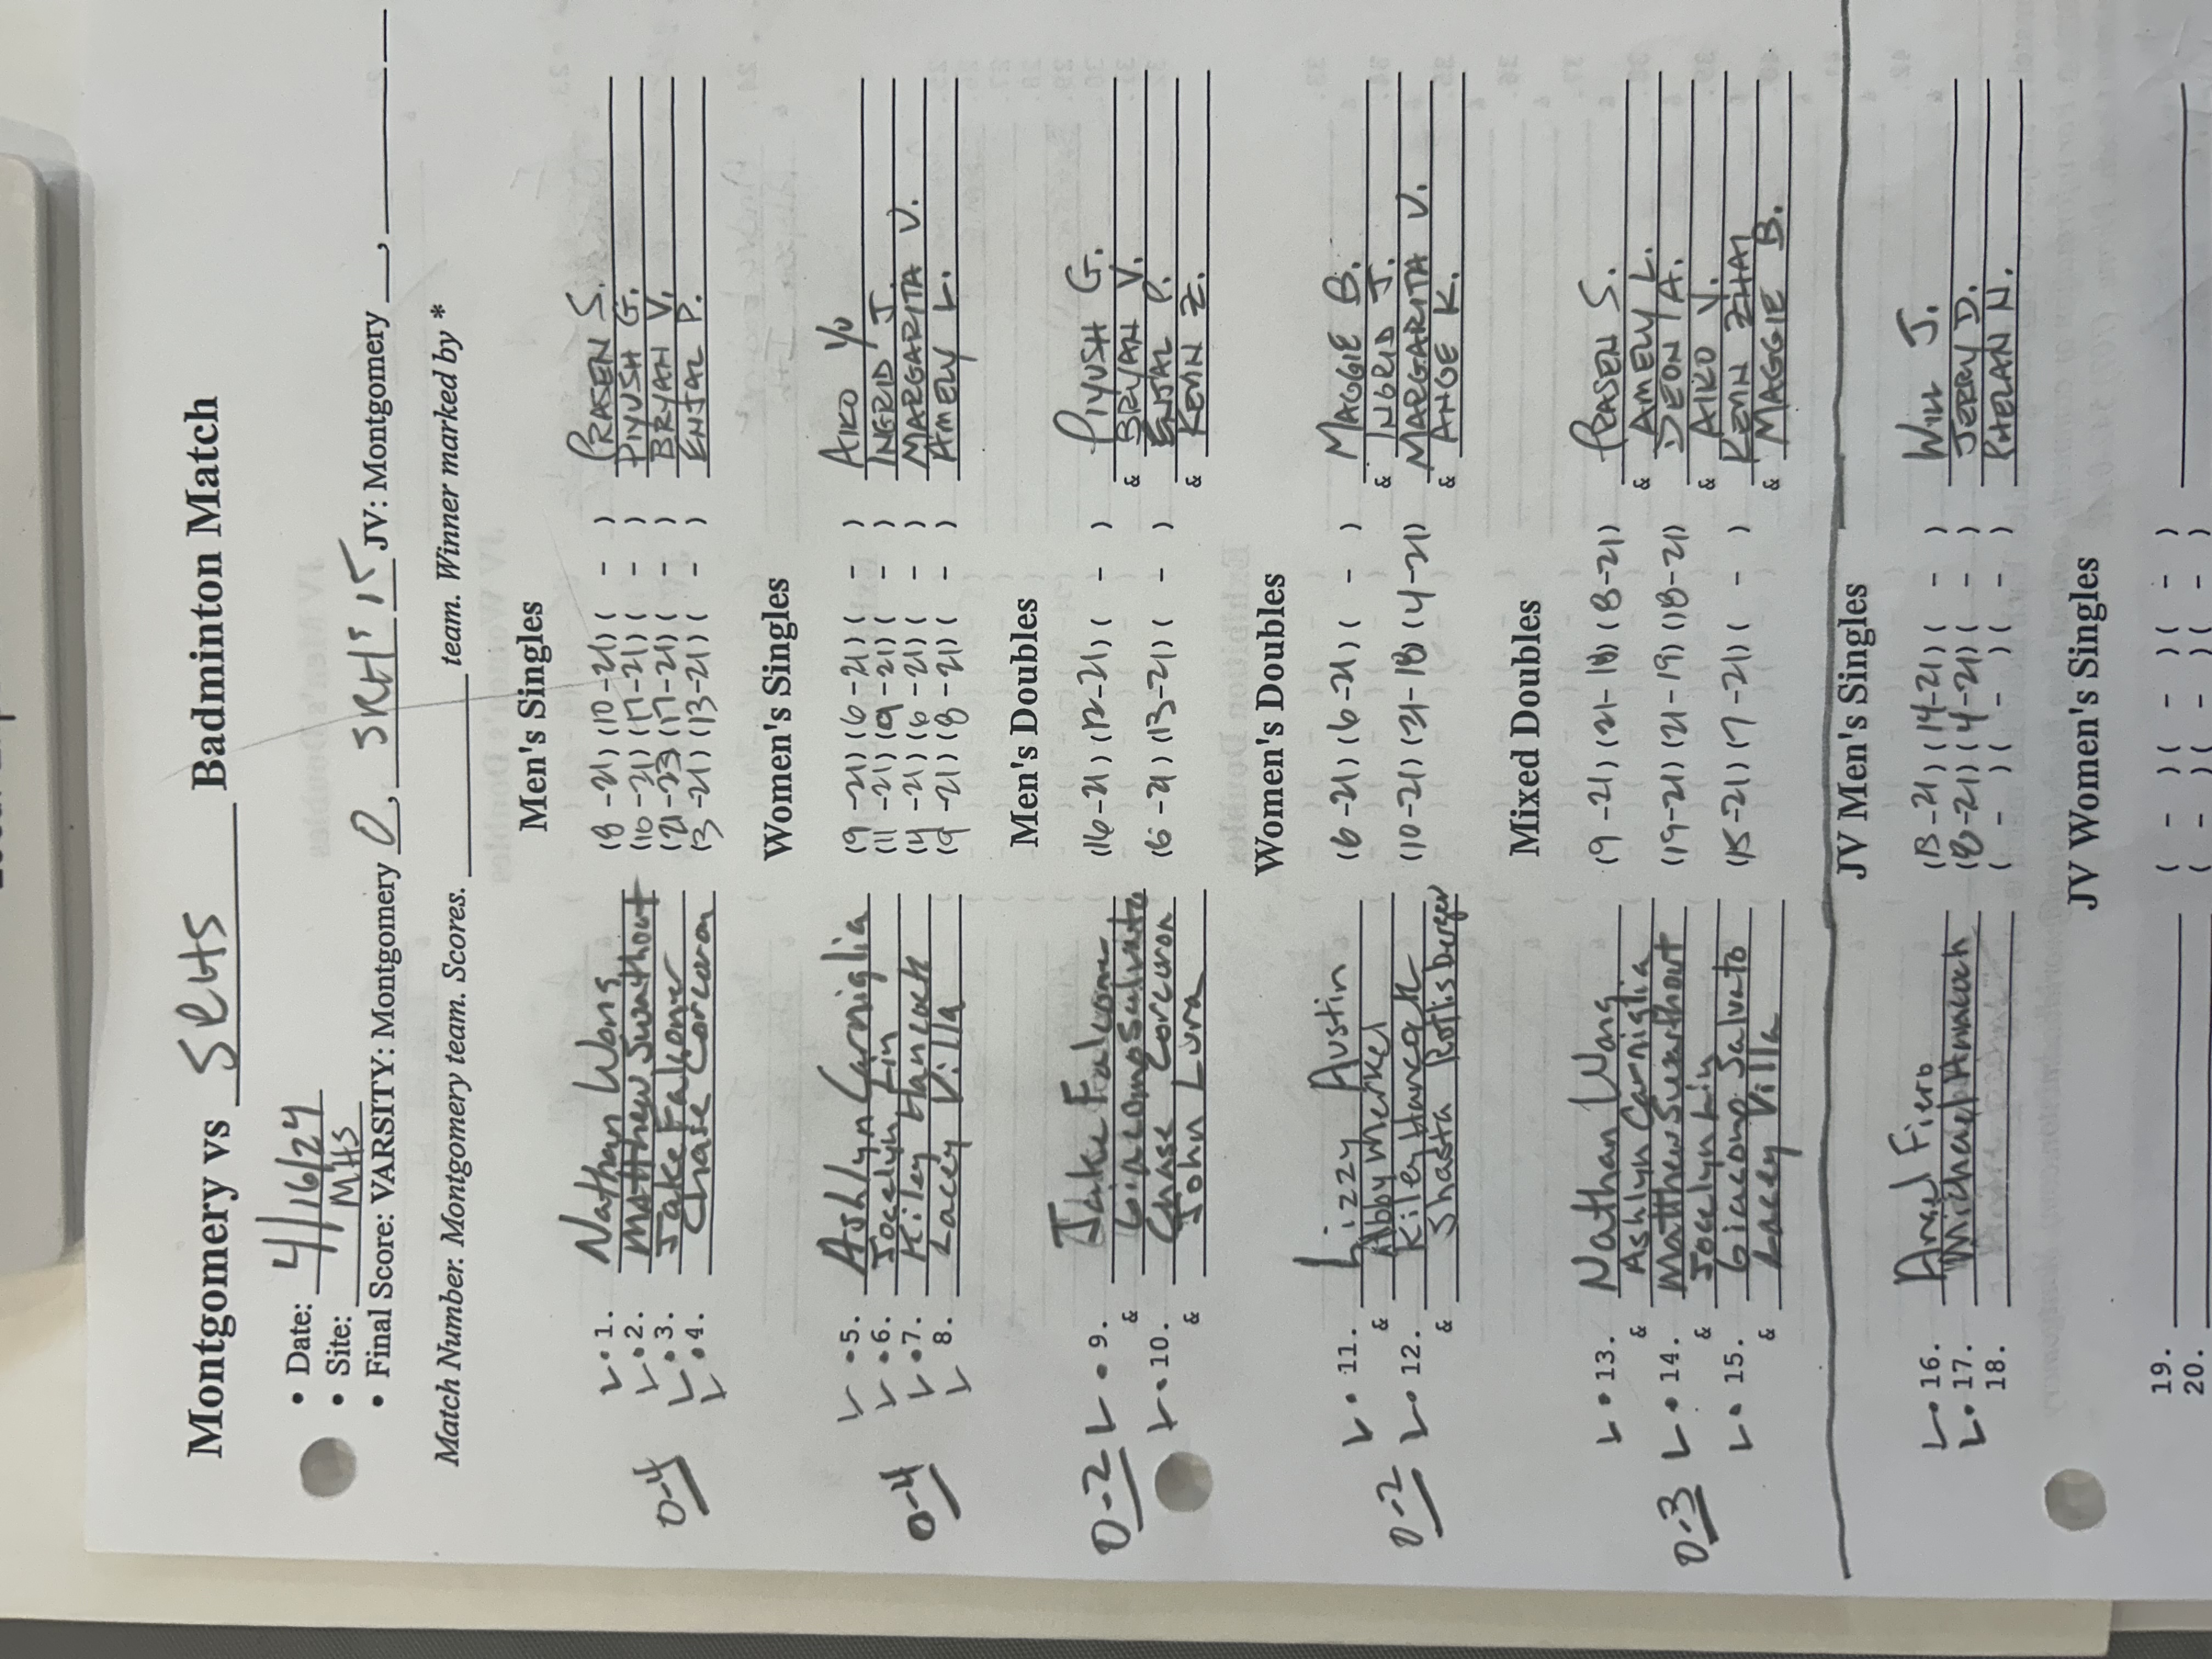 Montgomery vs SRHS Badminton Match
• Date: 4/16/24
• Site: MHS
• Final Score: VARSITY: Montgomery 0, SRHS 15 JV: Montgomery ___, ___
Match Number. Montgomery team. Scores. ___ team. Winner marked by *
Men's Singles
L • 1. Nathan Wong (18-21)(10-21)( - ) PRASEN S.
L • 2. Matthew Swarthout (16-21)(17-21)( - ) PIYUSH G.
L • 3. Jake Falconer (21-23)(17-21)( - ) BRYAN V.
0-4 L • 4. Chase Corcoran (13-21)(13-21)( - ) ENJAL P.
Women's Singles
L • 5. Ashlyn Carniglia (9-21)(6-21)( - ) AIKO
L • 6. Jocelyn Lin (11-21)(9-21)( - ) INGRID J.
L • 7. Kiley Hancock (4-21)(6-21)( - ) MARGARITA V.
0-4 L 8. Lacey Villa (9-21)(8-21)( - ) AMELY L.
Men's Doubles
0-2 L • 9. Jake Falconer (16-21)(12-21)( - ) PIYUSH G.
& Giacomo Salvato & BRYAN V.
L • 10. Chase Corcoran (6-21)(13-21)( - ) ENJAL P.
& John Lura & KEVIN Z.
Women's Doubles
L • 11. Lizzy Austin (6-21)(6-21)( - ) MAGGIE B.
& Abby Merkel & INGRID J.
0-2 L • 12. Kiley Hancock (10-21)(21-18)(4-21) MARGARITA V.
& Shasta Rotlisberger & ANGE K.
Mixed Doubles
L • 13. Nathan Wong (9-21)(21-18)(8-21) PRASEN S.
& Ashlyn Carniglia & AMELY L.
0-3 L • 14. Matthew Swarthout (19-21)(21-19)(18-21) DEON A.
& Jocelyn Lin & AIKO
L • 15. Giacomo Salvato (15-21)(7-21)( - ) KEVIN ZHAI
& Lacey Villa & MAGGIE B.
JV Men's Singles
L • 16. Angel Fierro (13-21)(14-21)( - ) WILL J.
L • 17. Michael (18-21)(4-21)( - ) JERRY D.
18. ( - )( - )( - ) PHELAN N.
JV Women's Singles
19. ( - )( - )( - )
20. ( - )( - )( - )